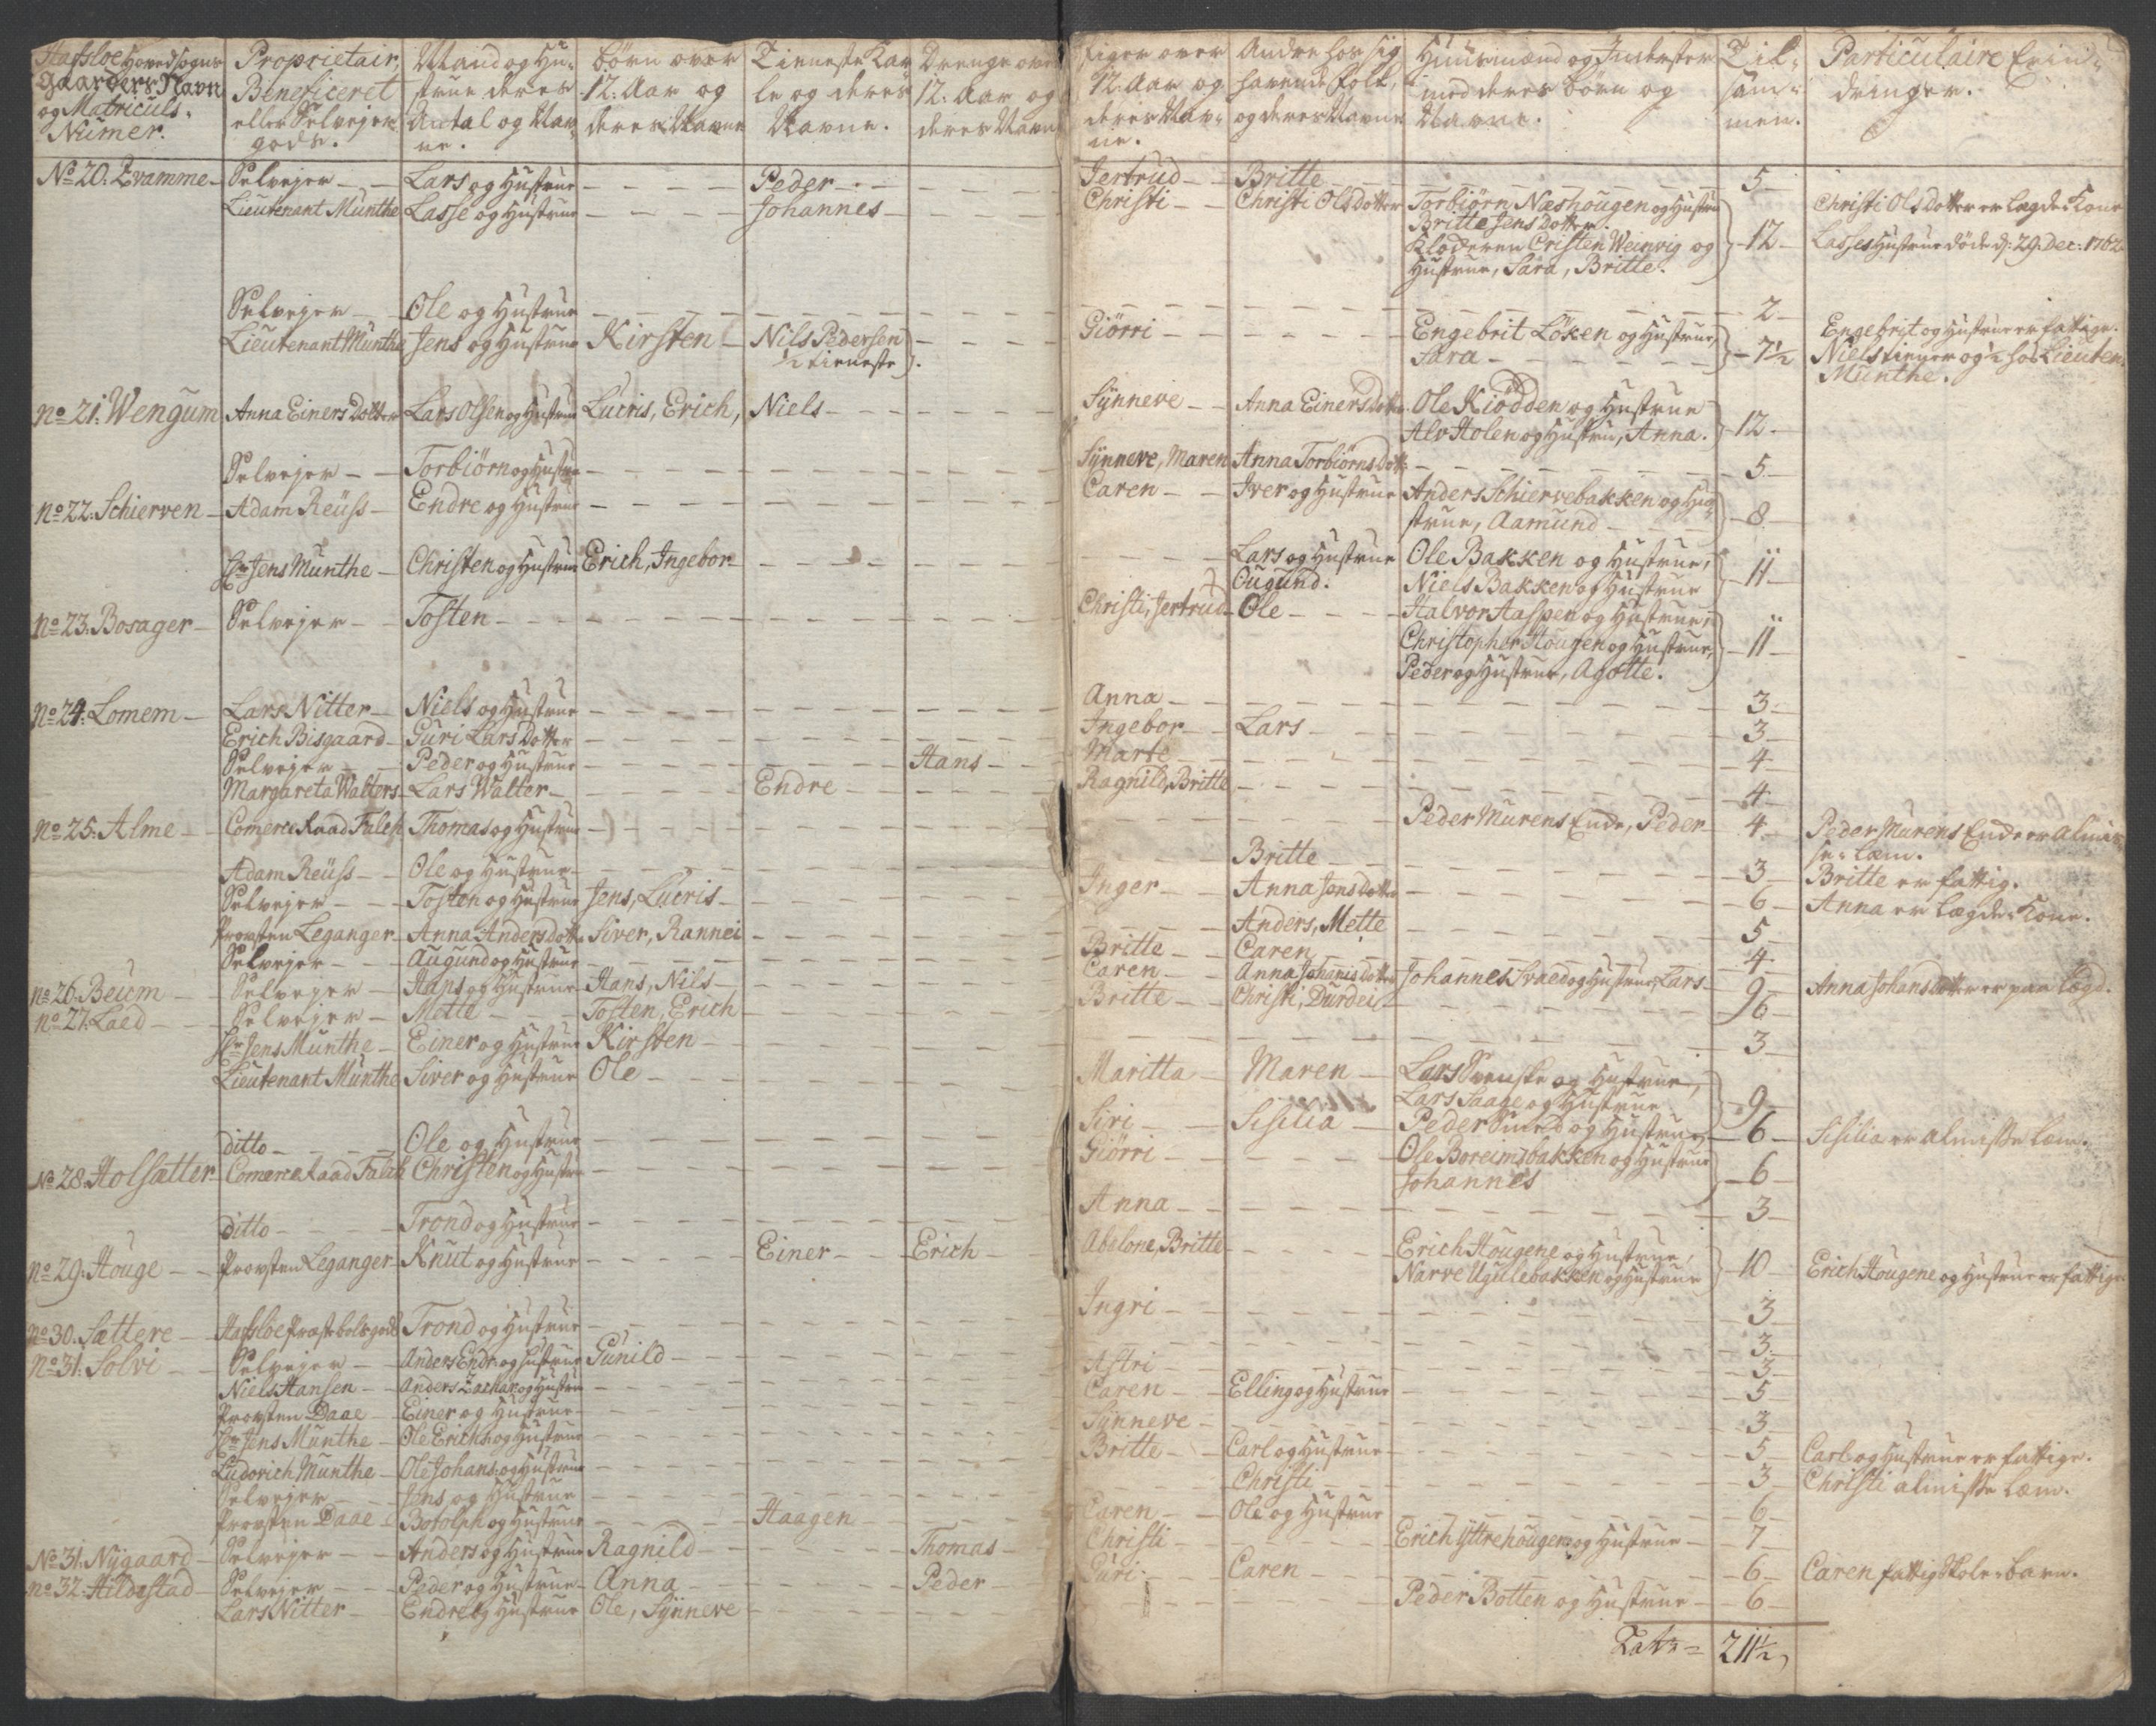 Hafsloe Hoved sogns Gaarders Navn og Matriculs Numer. | Proprietair, Beneficeret eller Selvejer gods. | Mand og Hustrue deres Antal og Navne. | børn over 12. Aar og deres Navne | Tieneste Karle og deres Navne. | Drenge over 12. Aar og deres Navne | Piger over 12. Aar og deres Navne. | Andre hos sig havende Folk, og deres Navne | Huusmænd og Inderster med deres børn og Navne. | Tilsammen. | Particulaire Erindringer.
No 20. Qvamme | Selvejer | Lars og Hustrue | Peder | Jertrud | Britte | 5
Lieutenant Munthe | Lasse og Hustrue | Johannes | Christi | Christi Ols Dotter | Torbiørn Næshougen og Hustru | 12 | Christi Ols Dotter er Lægde Kone
Britte Jens Dotter.
Kloderen Cristen Weinvig og | Lasses Hustrue døde d: 29. Dec: 1762
Hustrue, Sara, Britte.
Selvejer | Ole og Hustrue | 2
Lieutenant Munthe | Jens og Hustrue | Kirsten | Nils Pedersen ½ tieneste | Giørri | Engebrit Löken og Hustrue, | 7½ | Engebrit og Hustrue er fattige.
Sara | Niels tiener og ½ hos Lieuten.
Munthe.
No 21. Wengum | Anna Einers Dotter | Lars Olsen og Hustrue | Lucris, Erich, | Niels | Synneve | Anna Einers Dotter | Ole Kiödden og Hustrue | 12
Alv Holen og Hustru, Anna.
Selvejer | Torbiörn og Hustrue | Synneve, Maren | Anna Torbiörns Dott: | 5
No 22. Schierven | Adam Reüss | Endre og Hustrue | Caren | Iver og Hustrue | Anders Schiervebakken og Hu- | 8
strue, Aamund
Hr Jens Munthe | Christen og Hustrue | Erich, Ingebor | Lars og Hustrue | Ole Bakken og Hustrue, | 11
Ougund. | Niels Bakken og Hustrue
No 23. Bosager | Selvejer | Tosten | Christi, Jertrud | Ole | Halvor Haspen og Hustrue, | 11
Christopher Hougen og Hustrue,
Peder og Hustrue, Agotte.
No 24. Lomem | Lars Nitter | Niels og Hustrue | Anna | 3
Erich Bisgaard | Guri Lars Dotter | Ingebor | Lars | 3
Selvejer | Peder og Hustrue | Hans | Marte | 4
Margareta Walters | Lars Walter | Endre | Ragnild, Britte | 4
No 25. Alme | Comerce Raad Falch | Thomas og Hustrue | Peder Murens Ende, Peder | 4 | Peder Murens Ende er Almis-
se-læm.
Adam Reüss | Ole og Hustrue | Britte | 3 | Britte er fattig.
Selvejer | Tosten og Hustrue | Jens, Lucris | Inger | Anna Jens Dotter | 6 | Anna er Lægde-Kone.
Provsten Leganger | Anna Anders dott: | Siver, Rannei | Anders, Mette | 5
Selvejer | Augund og Hustrue | Britte | Caren | 4
No 26. Beum | Selvejer | Hans og Hustrue | Hans, Nils | Caren | Anna Johanis Dotter | Johannes Svaed og Hustrue, Lars | 9 | Anna Johans Dotter er paa Lægd.
No 27. Laed | Selvejer | Mette | Tosten, Erich | Britte | Christi, Durdei | 6
Hr Jens Munthe | Einer og Hustrue | Kirsten | 3
Lieutenant Munthe | Siver og Hustrue | Ole | Maritta | Maren | Lars Svenske og Hustrue, | 9
Lars Saage og Hustrue
ditto | Ole og Hustrue | Siri | Sisilia | Peder Smed og Hustrue | 6 | Sisilia er Almisse læm.
No 28. Holsætter | Comerce Raad Falch | Christen og Hustrue | Giörri | Ole Boreimsbakken og Hustrue | 6
Johannes
ditto | Trond og Hustrue | Anna | 3
No 29. Houge | Provsten Leganger | Knut og Hustrue | Einer | Erich | Abelone, Britte | Erich Hougene og Hustrue, | 10 | Erich Hougene og Hustrue er fattige
Narve Ugulebakken og Hustrue
No 30. Sættere | Hafsloe Præstebols gods | Trond og Hustrue | Ingri | 3
No 31. Solvi | Selvejer | Anders Endr. og Hustrue | Gunild | 3
Niels Hansen | Anders Zachar. og Hustru | Astri | 3
Provsten Daae | Einer og Hustrue | Caren | Elling og Hustrue | 5
Hr Jens Munthe | Ole Erichs. og Hustrue | Synneve | 3
Ludovich Munthe | Ole Johans. og Hustrue | Britte | Carl og Hustrue | 5 | Carl og Hustrue er fattige.
Selvejer | Jens og Hustrue | Christi | 3 | Christi Almisse læm.
Provsten Daae | Botolph og Hustrue | Haagen | Caren | Ole og Hustrue | 6
No 31. Nygaard | Selvejer | Anders og Hustrue | Ragnild | Thomas | Christi | Erich Yttrehougen og Hustrue | 7
No 32. Hildestad | Selvejer | Peder og Hustrue | Anna | Peder | Guri | Caren | 6 | Caren fattig Skole-barn.
Lars Nitter | Endre og Hustrue | Ole, Synneve | Peder Botten og Hustrue | 6
Latus = 211½